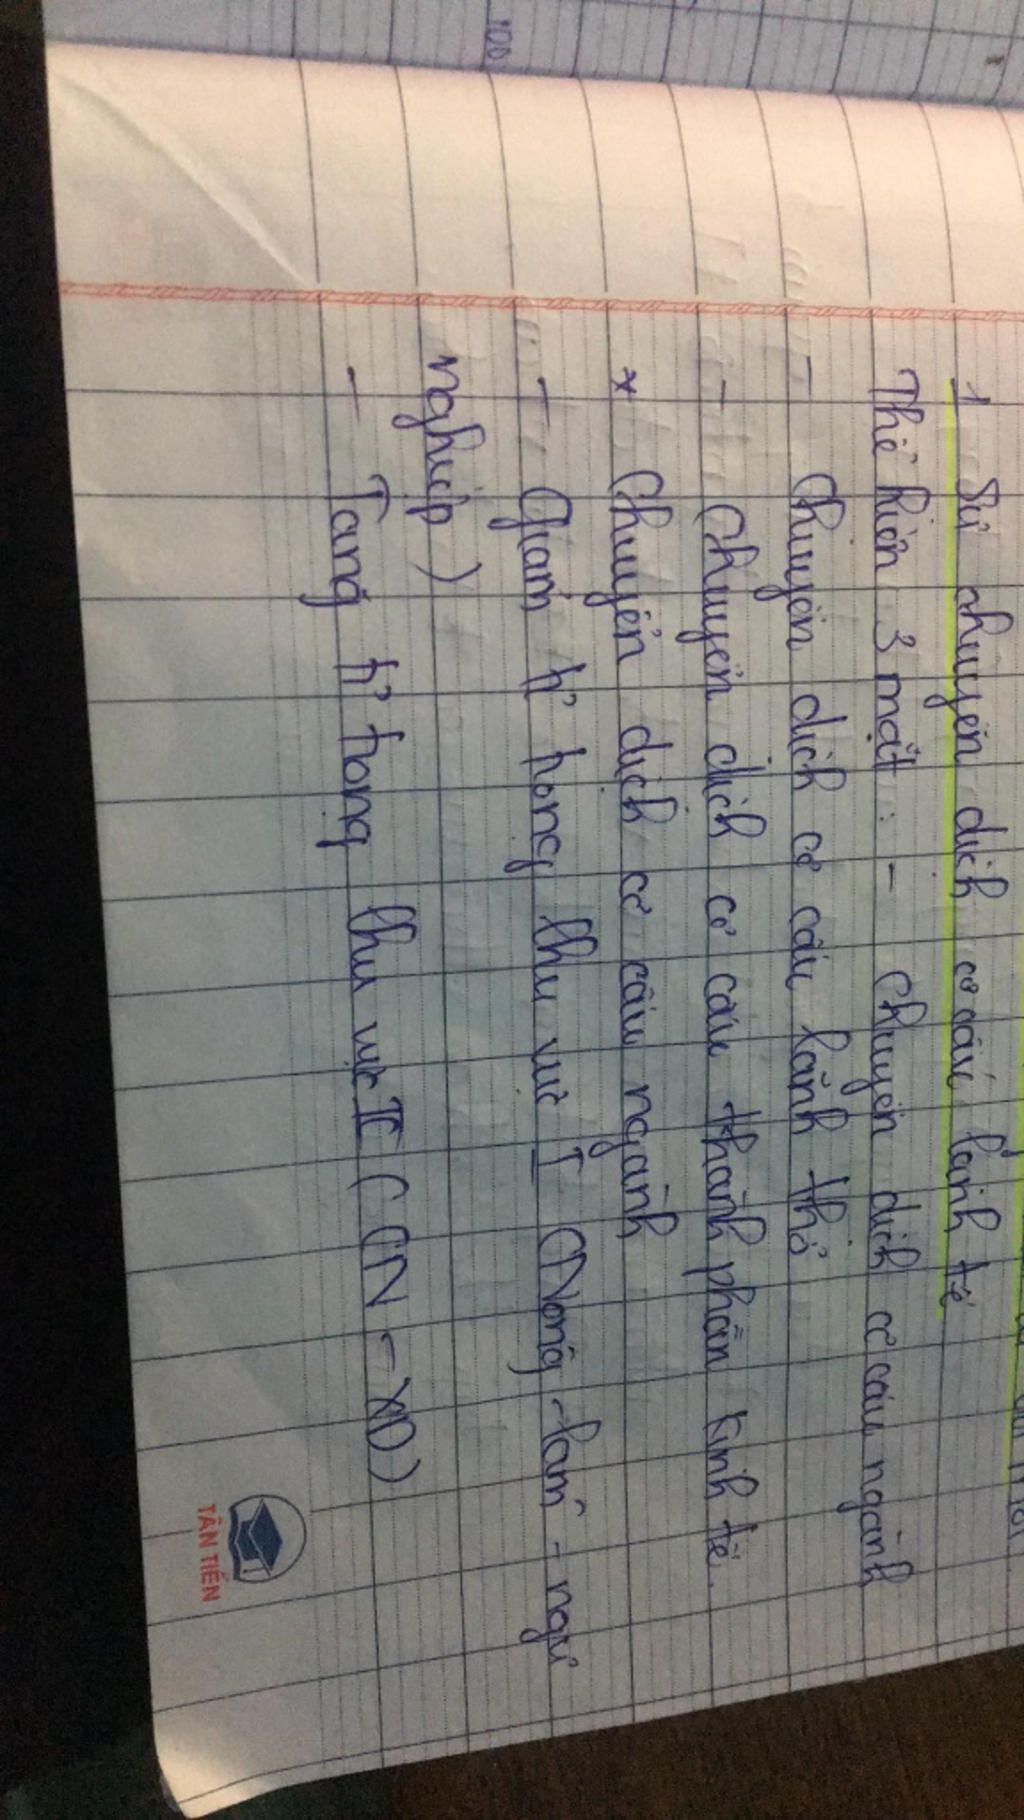 1 Sự chuyển dịch cơ cấu kinh tế
Thể hiện 3 mặt : - Chuyển dịch cơ cấu ngành
- Chuyển dịch cơ cấu lãnh thổ
- Chuyển dịch cơ cấu thành phần kinh tế.
* Chuyển dịch cơ cấu ngành
- Giảm tỉ trọng khu vực I (Nông - lâm - ngư
nghiệp)
- Tăng tỉ trọng khu vực II (CN - XD)
TÂN TIẾN
100